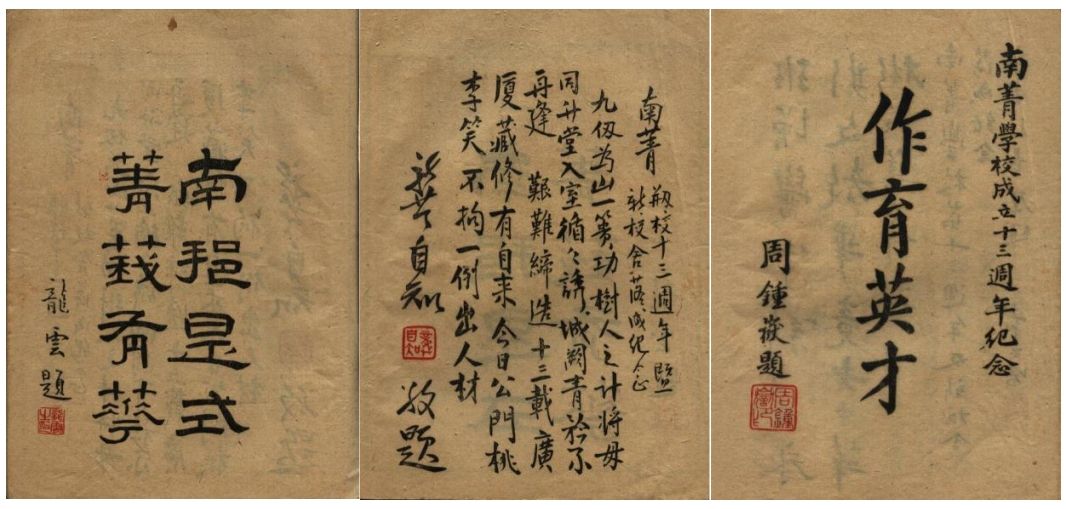 南邦是式
菁莪有華
龍雲題
南菁 剏校十三週年暨
新校舍落成纪念
九仞為山一簣功樹人之計將毋
同升堂入室循々誘城闕青衿不
再逢 艱難締造十三載廣
廈藏修有自来今日公門桃
李笑不拘一例出人材
龔自知 敬題
南菁學校成立十三週年紀念
作育英才
周鍾嶽題